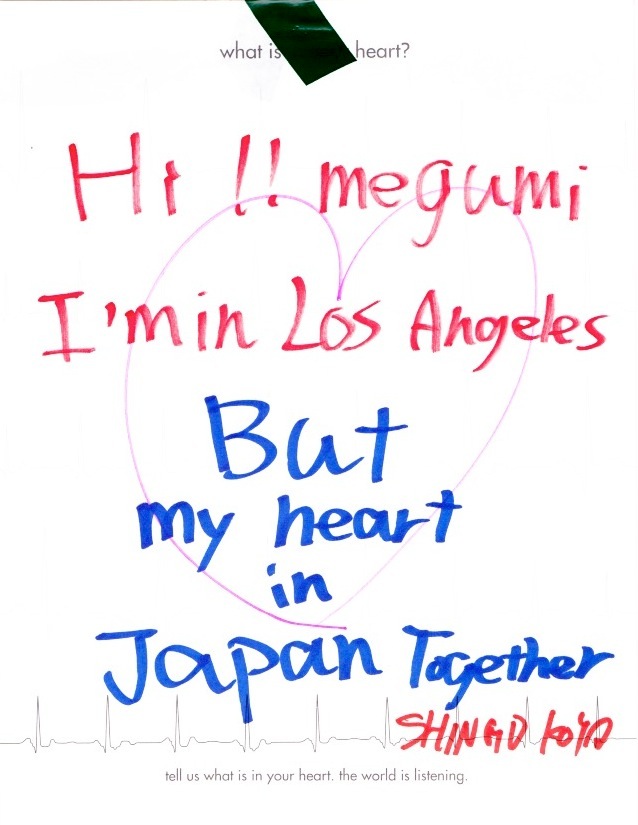 what is heart?
Hi !! megumi
I'm in Los Angeles
But
my heart
in
Japan Together
SHINGO
tell us what is in your heart. the world is listening.